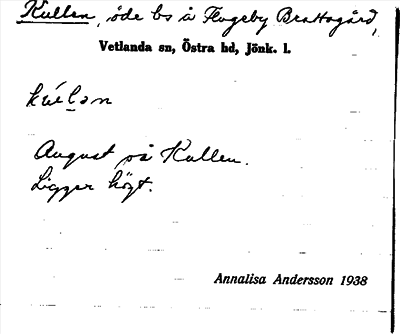 Kullen, öde bs å Flugeby Brattsgård,
Vetlanda sn, Östra hd, Jönk. l.
August på Kullen.
Ligger högt.
Annalisa Andersson 1938